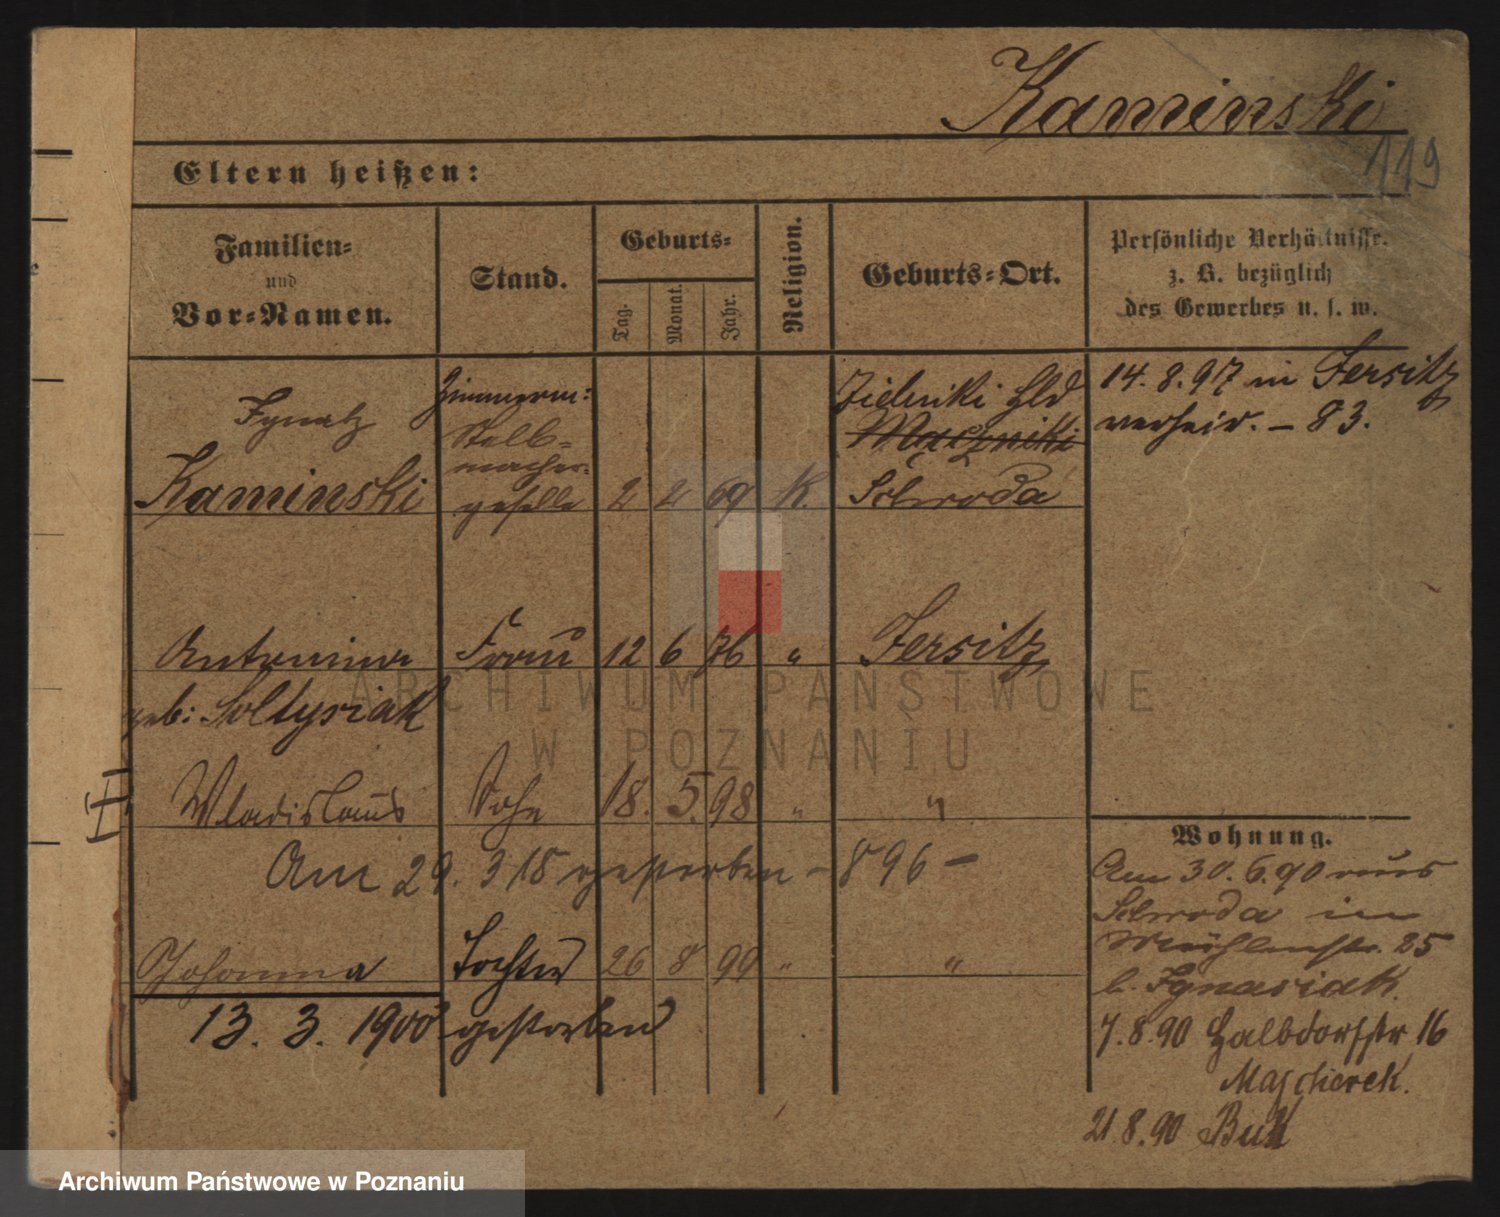 Kaminski
119
Eltern heißen:
Familien-
und
Vor-Namen.
Stand.
Geburts-
Tag.
Monat.
Jahr.
Religion.
Geburts-Ort.
Persönliche Verhältnisse.
z. B. bezüglich
des Gewerbes u. s. w.
Ignatz
Kaminski
Zimmerm:
Stell-
macher-
geselle
2 2 69 K.
Zielniki Hld
Mączniki
Schroda
14.8.97 in Jersitz
verheir. - 83.
Antonina Frau 12 6 76 " Jersitz
geb: Soltysiak
Wladislaus Sohn 18. 5. 98 " "
II.
Am 29. 3 18 gestorben - 896 -
Johanna Tochter 26 8 99 " "
13. 3. 1900 gestorben
Wohnung.
Am 30.6.90 aus
Schroda in
Mühlenstr. 25
b. Ignasiak.
7.8.90 Halbdorfstr 16
Maschorek.
21.8.90 Buk
ARCHIWUM PAŃSTWOWE
W POZNANIU
Archiwum Państwowe w Poznaniu